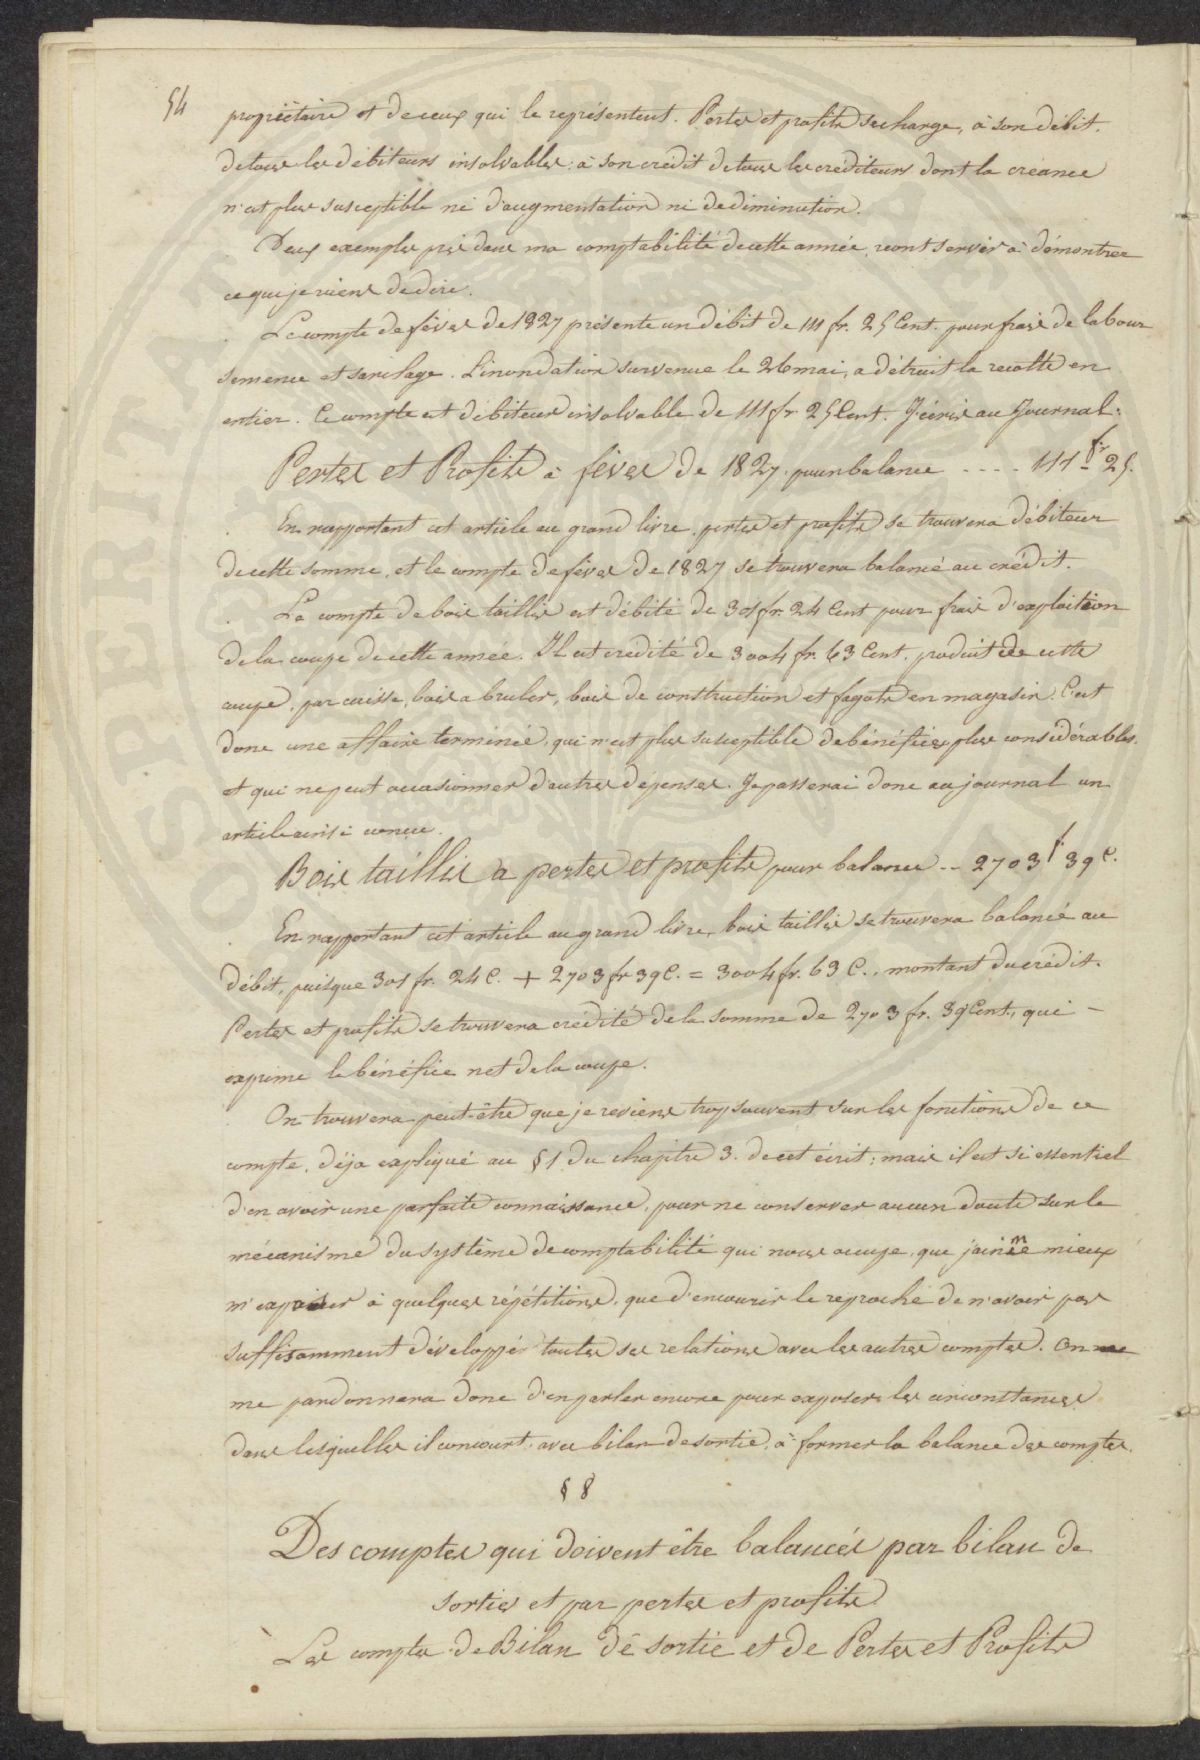 54
propriétaire et de ceux qui le représentent. Pertes et profits se charge, à son débit,
de tous les débiteurs insolvables: à son crédit de tous les créditeurs dont la créance
n'est plus susceptible ni d'augmentation ni de diminution.
Deux exemples pris dans ma comptabilité de cette année, vont servir à démontrer
ce que je viens de dire.
Le compte de fèves de 1827 présente un débit de 111 fr. 25 Cent. pour frais de labour
semence et sarclage. L'inondation survenue le 26 mai, a détruit la récolte en
entier. Ce compte est débiteur insolvable de 111 fr 25 Cent. J'écris au Journal:
Pertes et Profits à fèves de 1827. pour balance .... 111 fr 25.
En rapportant cet article au grand livre, pertes et profits se trouvera débiteur
de cette somme, et le compte de fèves de 1827 se trouvera balancé au crédit.
Le compte de bois taillis est débité de 301 fr. 24 Cent pour frais d'exploition
de la coupe de cette année. Il est crédité de 3004 fr. 63 Cent. produit de cette
coupe, par caisse, bois a bruler, bois de construction et fagots en magasin. C'est
donc une affaire terminée, qui n'est plus susceptible de bénéfices plus considérables.
et qui ne peut occasionner d'autres dépenses. Je passerai donc au journal un
article ainsi concu.
Bois taillis a pertes et profits pour balance -- 2703 f 39 C.
En rapportant cet article au grand livre, bois taillis se trouvera balancé au
débit, puisque 301 fr. 24 C. + 2703 fr 39 C. = 3004 fr. 63 C., montant du crédit.
Pertes et profits se trouvera crédité de la somme de 2703 fr. 39 Cent, qui –
exprime le bénéfice net de la coupe.
On trouvera peut-être que je reviens trop souvent sur les fonctions de ce
compte, déja expliqué au §1 du chapitre 3. de cet écrit; mais il est si essentiel
d'en avoir une parfaite connaissance, pour ne conserver aucun doute sur le
mécanisme du système de comptabilité qui nous occupe, que j'aime mieux
m'exposer à quelques répétitions, que d'encourir le reproche de n'avoir pas
suffisamment développé toutes ses relations avec les autres comptes. On
me pardonnera donc d'en parler encore pour exposer les circonstances
dans lesquelles il concourt, avec bilan de sortie, à former la balance des comptes.
§ 8
Des comptes qui doivent être balancés par bilan de
sortie et par pertes et profits
Les comptes de Bilan de sortie et de Pertes et Profits